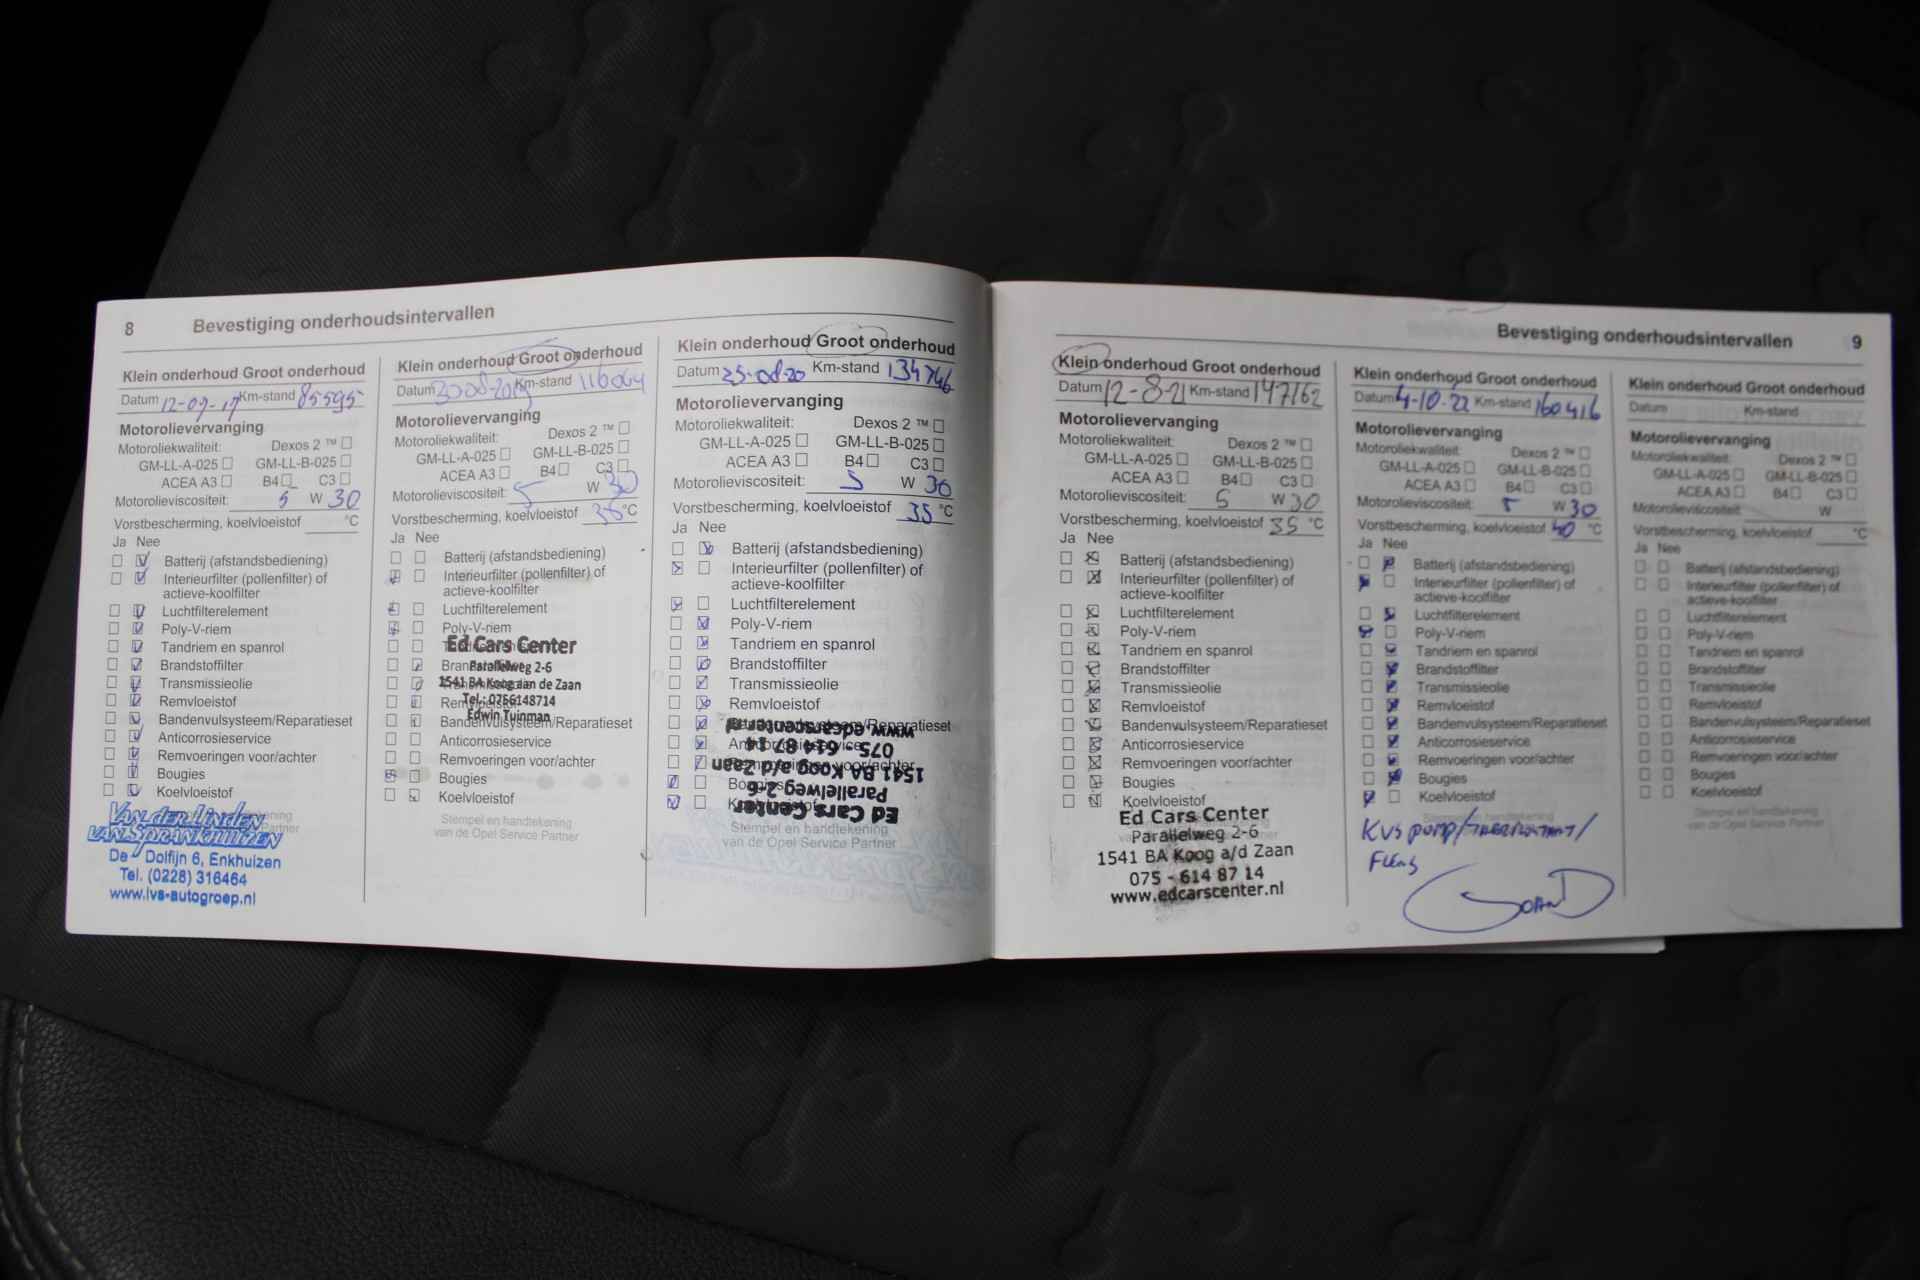 8 Bevestiging onderhoudsintervallen
Klein onderhoud Groot onderhoud
Datum 12-09-17 Km-stand 85595
Motorolievervanging
Motoroliekwaliteit: Dexos 2 ™
GM-LL-A-025 GM-LL-B-025
ACEA A3 B4 C3
Motorolieviscositeit: 5 W 30
Vorstbescherming, koelvloeistof °C
Ja Nee
Batterij (afstandsbediening)
Interieurfilter (pollenfilter) of
actieve-koolfilter
Luchtfilterelement
Poly-V-riem
Tandriem en spanrol
Brandstoffilter
Transmissieolie
Remvloeistof
Bandenvulsysteem/Reparatieset
Anticorrosieservice
Remvoeringen voor/achter
Bougies
Koelvloeistof
Van der Linden
van Sprankhuizen
De Dolfijn 6, Enkhuizen
Tel. (0228) 316464
www.lvs-autogroep.nl
Klein onderhoud Groot onderhoud
Datum 30-08-2019 Km-stand 116064
Motorolievervanging
Motoroliekwaliteit: Dexos 2 ™
GM-LL-A-025 GM-LL-B-025
ACEA A3 B4 C3
Motorolieviscositeit: 5 W 30
Vorstbescherming, koelvloeistof 36 °C
Ja Nee
Batterij (afstandsbediening)
Interieurfilter (pollenfilter) of
actieve-koolfilter
Luchtfilterelement
Poly-V-riem
Ed Cars Center
Parallelweg 2-6
1541 BA Koog aan de Zaan
Tel.: 0756148714
Edwin Tuinman
Remvloeistof
Bandenvulsysteem/Reparatieset
Anticorrosieservice
Remvoeringen voor/achter
Bougies
Koelvloeistof
Stempel en handtekening
van de Opel Service Partner
Klein onderhoud Groot onderhoud
Datum 25-08-20 Km-stand 134746
Motorolievervanging
Motoroliekwaliteit: Dexos 2 ™
GM-LL-A-025 GM-LL-B-025
ACEA A3 B4 C3
Motorolieviscositeit: 5 W 30
Vorstbescherming, koelvloeistof 35 °C
Ja Nee
Batterij (afstandsbediening)
Interieurfilter (pollenfilter) of
actieve-koolfilter
Luchtfilterelement
Poly-V-riem
Tandriem en spanrol
Brandstoffilter
Transmissieolie
Remvloeistof
Bandenvulsysteem/Reparatieset
Anticorrosieservice
Remvoeringen voor/achter
Bougies
Koelvloeistof
Ed Cars Center
Parallelweg 2-6
1541 BA Koog a/d Zaan
075 - 614 87 14
www.edcarscenter.nl
Stempel en handtekening
van de Opel Service Partner
Bevestiging onderhoudsintervallen 9
Klein onderhoud Groot onderhoud
Datum 12-8-21 Km-stand 147162
Motorolievervanging
Motoroliekwaliteit: Dexos 2 ™
GM-LL-A-025 GM-LL-B-025
ACEA A3 B4 C3
Motorolieviscositeit: 5 W 30
Vorstbescherming, koelvloeistof 35 °C
Ja Nee
Batterij (afstandsbediening)
Interieurfilter (pollenfilter) of
actieve-koolfilter
Luchtfilterelement
Poly-V-riem
Tandriem en spanrol
Brandstoffilter
Transmissieolie
Remvloeistof
Bandenvulsysteem/Reparatieset
Anticorrosieservice
Remvoeringen voor/achter
Bougies
Koelvloeistof
Ed Cars Center
Parallelweg 2-6
1541 BA Koog a/d Zaan
075 - 614 87 14
www.edcarscenter.nl
Klein onderhoud Groot onderhoud
Datum 4-10-22 Km-stand 160416
Motorolievervanging
Motoroliekwaliteit: Dexos 2 ™
GM-LL-A-025 GM-LL-B-025
ACEA A3 B4 C3
Motorolieviscositeit: 5 W 30
Vorstbescherming, koelvloeistof 40 °C
Ja Nee
Batterij (afstandsbediening)
Interieurfilter (pollenfilter) of
actieve-koolfilter
Luchtfilterelement
Poly-V-riem
Tandriem en spanrol
Brandstoffilter
Transmissieolie
Remvloeistof
Bandenvulsysteem/Reparatieset
Anticorrosieservice
Remvoeringen voor/achter
Bougies
Koelvloeistof
KVS pomp/thermostaat/
Flens
Klein onderhoud Groot onderhoud
Datum Km-stand
Motorolievervanging
Motoroliekwaliteit: Dexos 2 ™
GM-LL-A-025 GM-LL-B-025
ACEA A3 B4 C3
Motorolieviscositeit: W
Vorstbescherming, koelvloeistof °C
Ja Nee
Batterij (afstandsbediening)
Interieurfilter (pollenfilter) of
actieve-koolfilter
Luchtfilterelement
Poly-V-riem
Tandriem en spanrol
Brandstoffilter
Transmissieolie
Remvloeistof
Bandenvulsysteem/Reparatieset
Anticorrosieservice
Remvoeringen voor/achter
Bougies
Koelvloeistof
Stempel en handtekening
van de Opel Service Partner